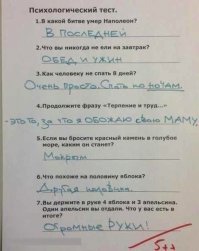 Психологический тест.
1.В какой битве умер Наполеон?
В ПОСЛЕДНЕЙ
2.Что вы никогда не ели на завтрак?
ОБЕД, И УЖИН
3.Как человеку не спать 8 дней?
Очень просто. Спать по ночам.
4.Продолжите фразу «Терпение и труд...»
-ЭТО ТО, за что Я ОБОЖАЮ свою МАМУ
5.Если вы бросите красный камень в голубое
море, каким он станет?
Мокрым
6.Что похоже на половину яблока?
Другая половина.
7.Вы держите в руке 4 яблока и 3 апельсина.
Один апельсин вы отдали. Что у вас есть в
итоге?
Огромные РУКИ!
5++